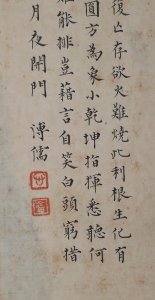 復亡存欲火難燒此利根生化有
圓方為象小乾坤指揮悉聽何
難能排豈藉言自笑白頭窮措
月夜開門 溥儒